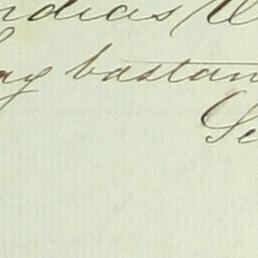 ndias
ay bastan
Se